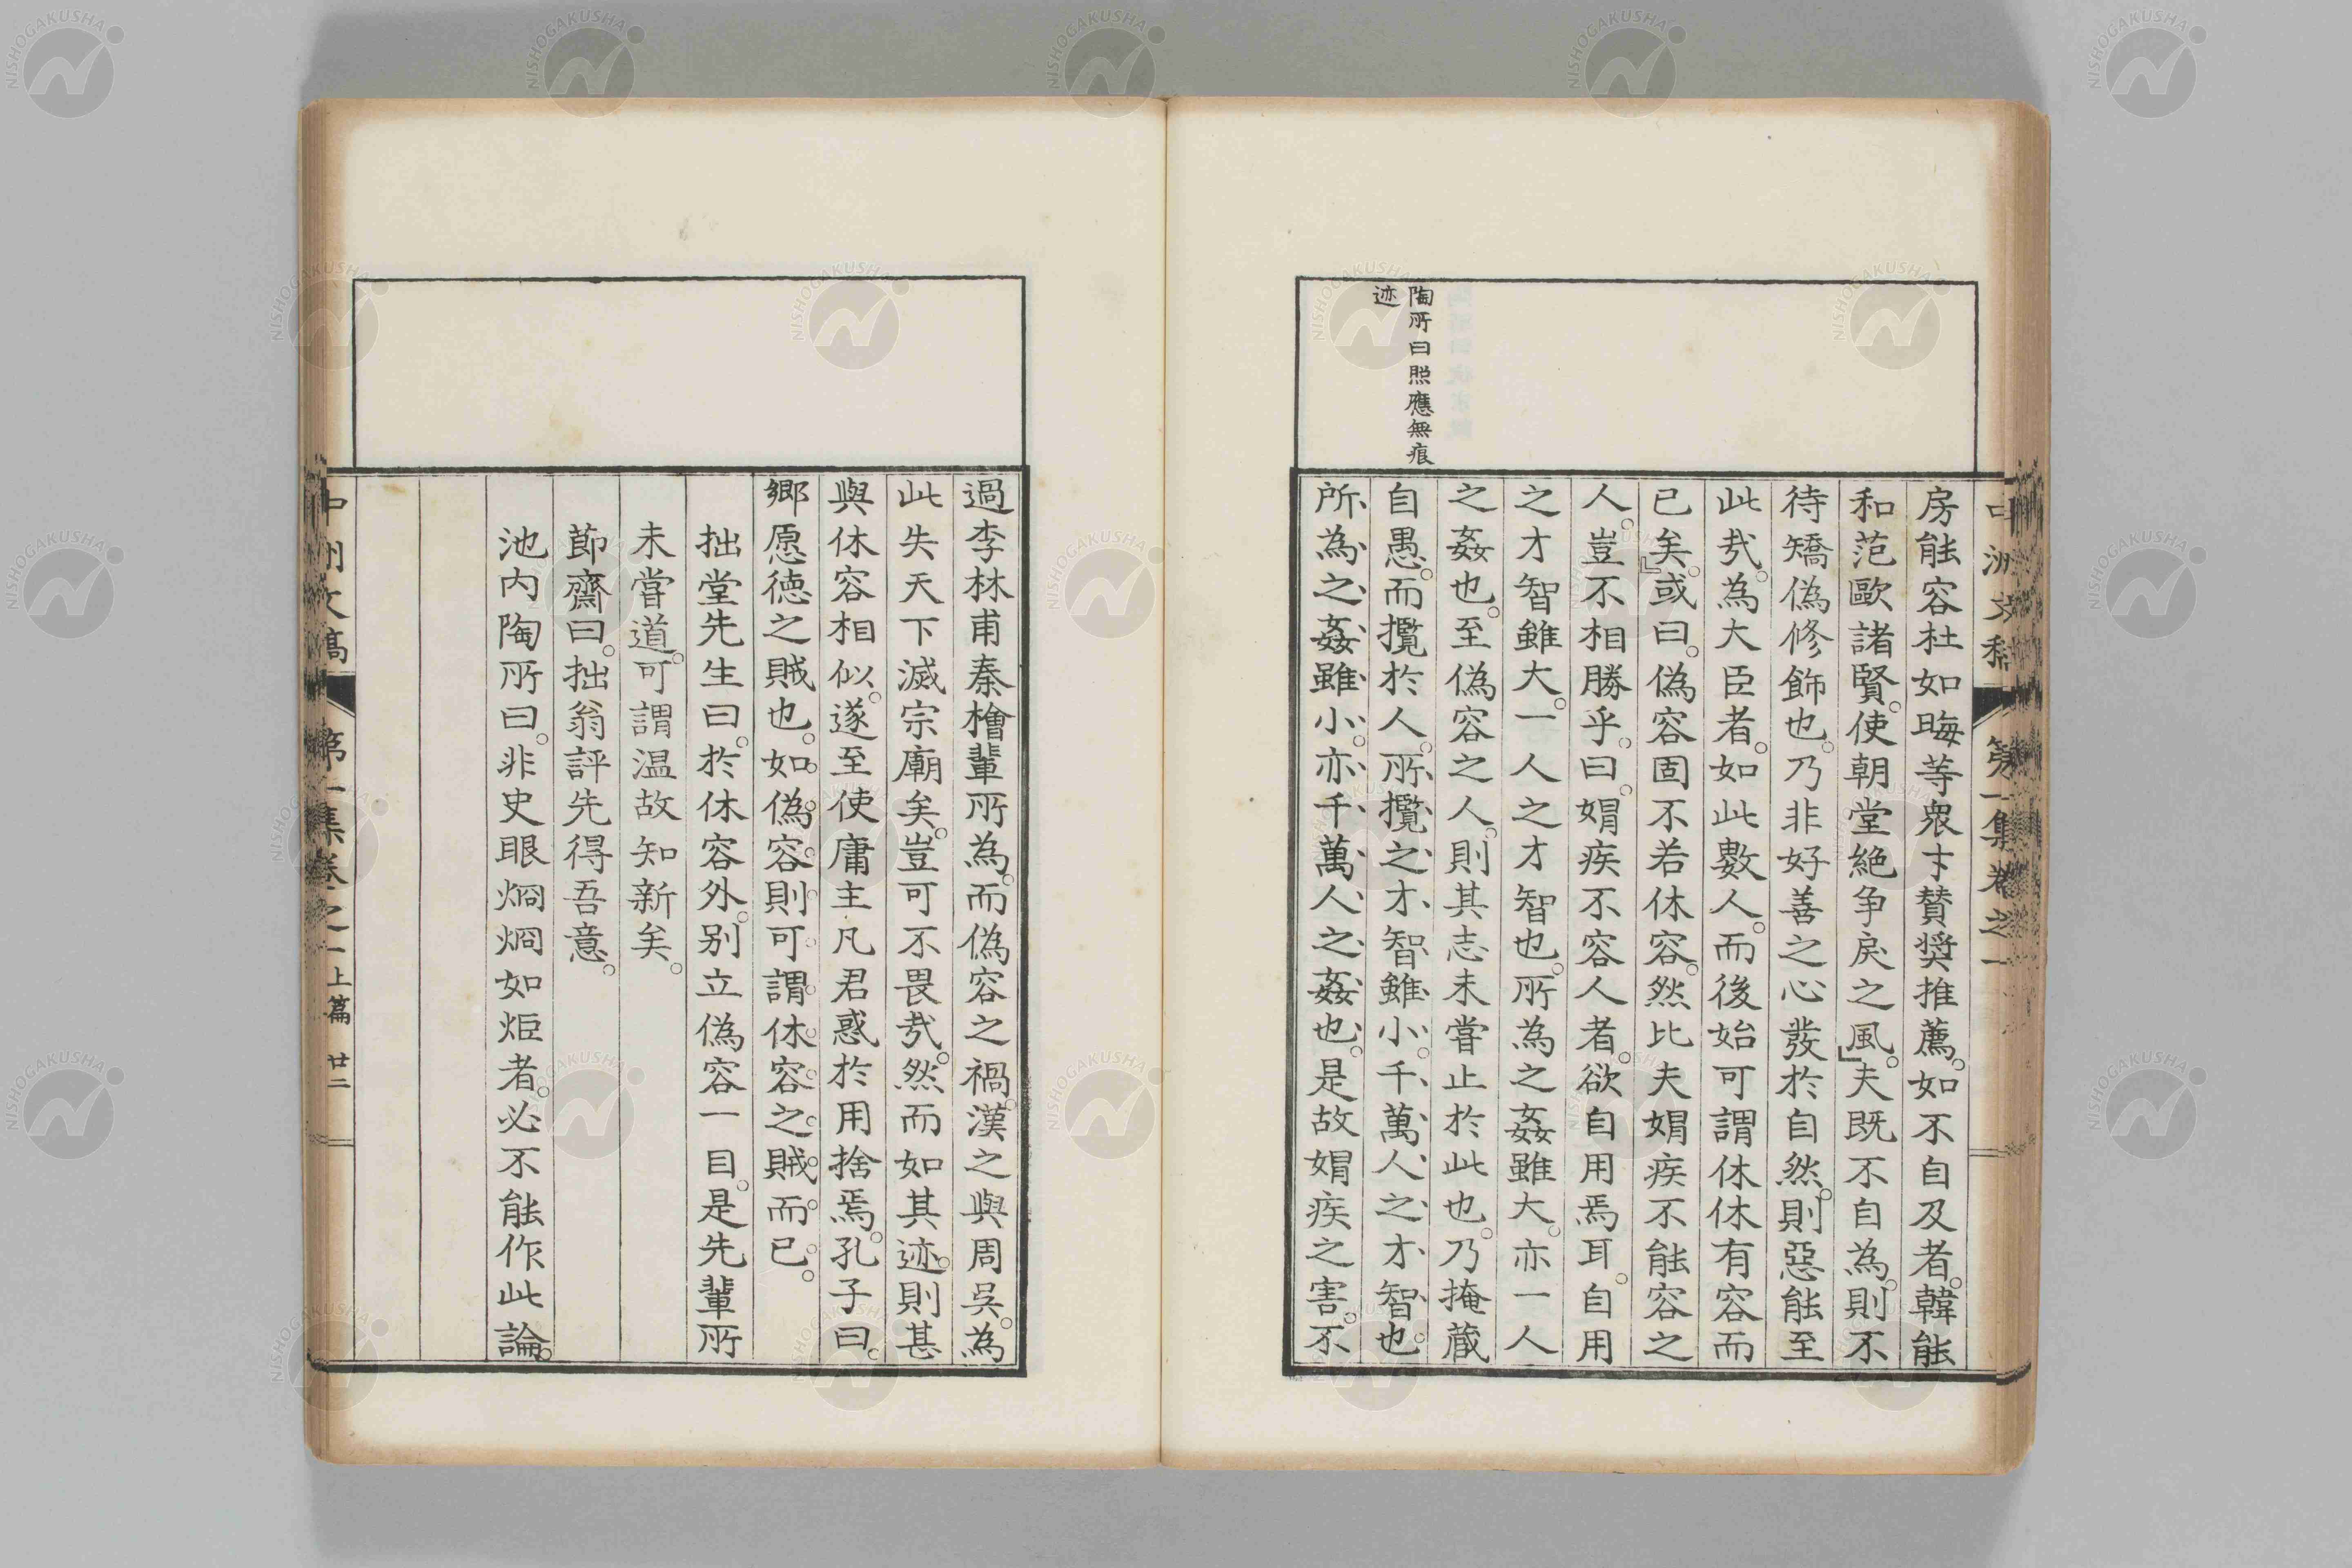 中洲文稿 第一集卷之一
房能容杜如晦等衆卞賛奨推薦。如不自及者。韓能
和范歐諸賢。使朝堂絶争戻之風。』夫既不自為。則不
待矯偽修飾也。乃非好善之心發於自然。則惡能至
此㢤。為大臣者。如此數人。而後始可謂休休有容而
已矣。』或曰。偽容固不若休容。然比夫媢疾不能容之
人。豈不相勝乎。曰。媢疾不容人者。欲自用焉耳。自用
之才智雖大。一人之才智也。所為之姦雖大。亦一人
之姦也。至偽容之人。則其志未嘗止於此也。乃掩蔵
自愚。而攬於人。所攬之才智雖小。千萬人之才智也。
所為之姦雖小。亦千萬人之姦也。是故媢疾之害。不
陶所曰照應無痕
迹
過李林甫秦檜輩所為。而偽容之禍。漢之與周吳。為
此失天下滅宗廟矣。豈可不畏㢤。然而如其迹。則甚
與休容相似。遂至使庸主凡君惑於用捨焉。孔子曰。
鄉愿徳之賊也。如偽容則可謂休容之賊而已。
拙堂先生曰。於休容外。別立偽容一目。是先輩所
未嘗道。可謂温故知新矣。
節齋曰。拙翁評先得吾意。
池内陶所曰。非史眼烱烱如炬者。必不能作此論。
中洲文稿 第一集卷之一上篇 廿二
NISHOGAKUSHA